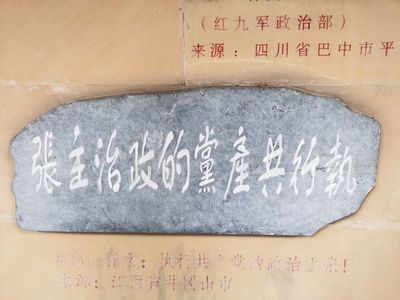 (红九军政治部)
来源：四川省巴中市平
執行共產黨的政治主張
文：执行共产党的政治主张！
来源：江西省井冈山市